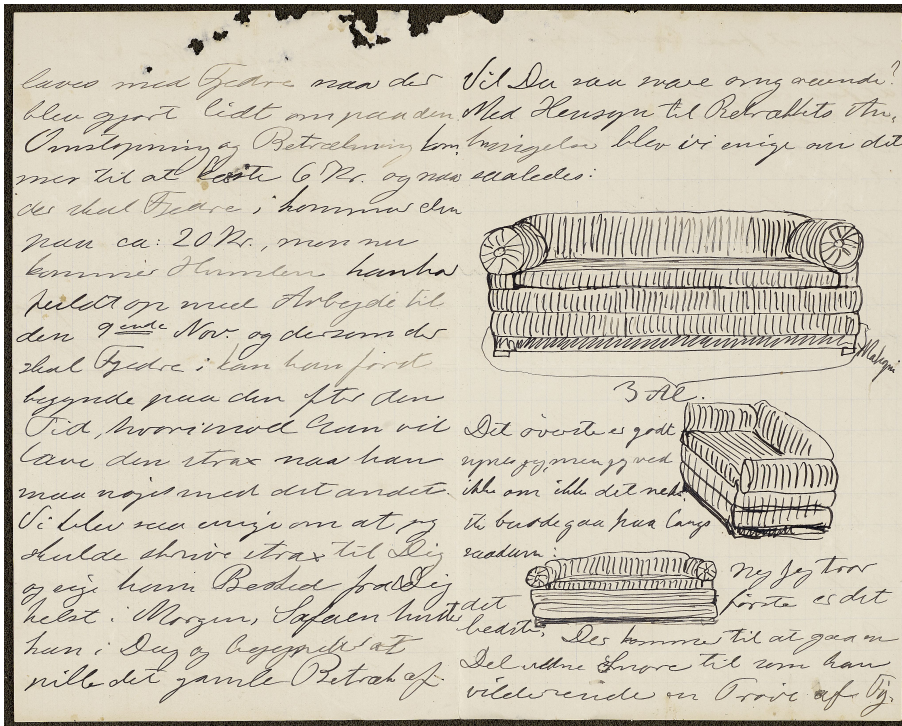 laves med Fjedre naar der
blev gjort lidt om paa den
Omstopning og Betrækning kom
mer til at koste 6 Kr. og naar
der skal Fjedre i kommer den
paa ca: 20 Kr., men nu
kommer Humlen han har
fuldt op med Arbejde til
den 9ende Nov. og dersom der
skal Fjedre i kan han først
begynde paa den efter den
Tid, hvorimod han vil
lave den strax naar han
maa nøjes med det andet.
Vi blev saa enige om at jeg
skulde skrive strax til Dig
og sige ham Besked fra Dig
helst i Morgen, Sofaen hentet
han i Dag og begynder at
pille det gamle Betræk af.
Vil Du saa svare omgaaende?
Med Hensyn til Betrækkets An,
bringelse blev vi enige om det
saaledes:
Mahogni
3 Al.
Det øverste er godt
synes jeg, men jeg ved
ikke om ikke det ned.
ste burde gaa paa langs
saadan:
Nej jeg tror
det første er det
bedste, Der kommer til at gaa en
Del Snore til som han
en Prøve af. Vi